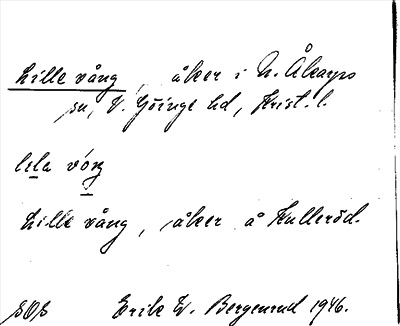 Lille vång, åker i N. Åkarps
sn, V. Göinge hd, Krist. l.
lila våŋ
Lille vång, åker å Hulleröd.
SOS Erik W. Bergenrud 1946.